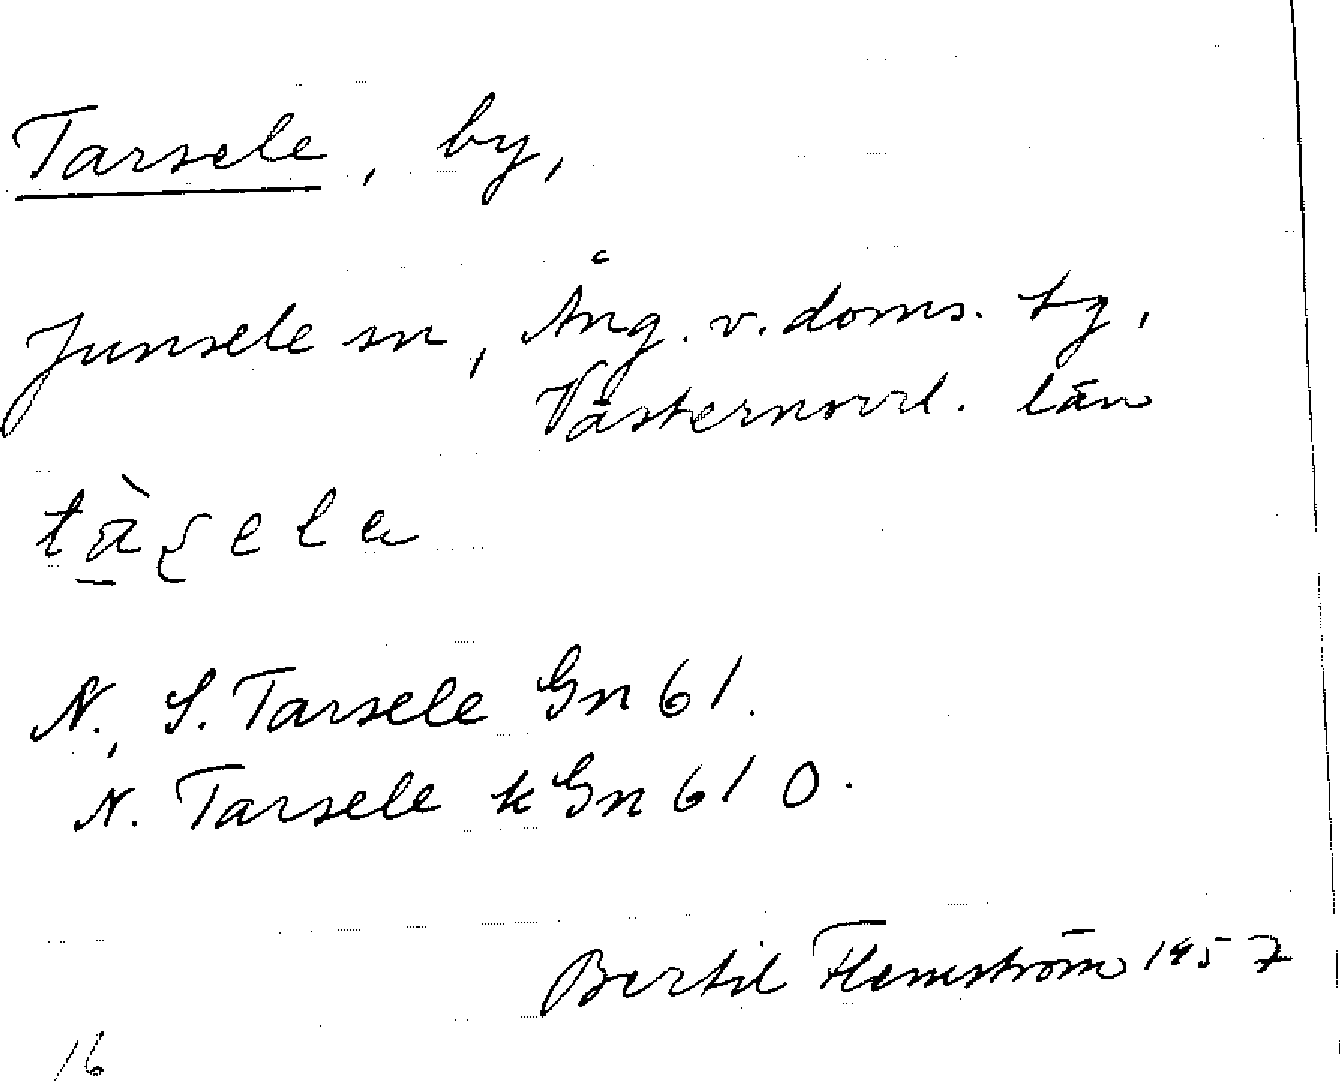 Tarsele, by,
Junsele sn, Ång. v. doms. tg,
Västernorrl. län
N., S. Tarsele Gn 61.
N. Tarsele k Gn 61 O.
Bertil Flemström 1957
16